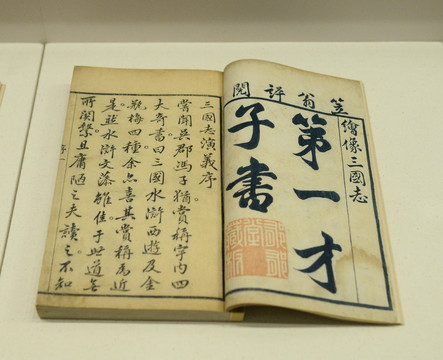 笠翁評閱
繪像三國志
第一才
子書
三國志演義序
嘗聞吳郡馮子猶賞稱宇內四
大奇書曰三國水滸西遊及金
瓶梅四種余亦喜其賞稱為近
是然水滸文藻雖佳于世道無
所關繫且庸陋之夫讀之不知